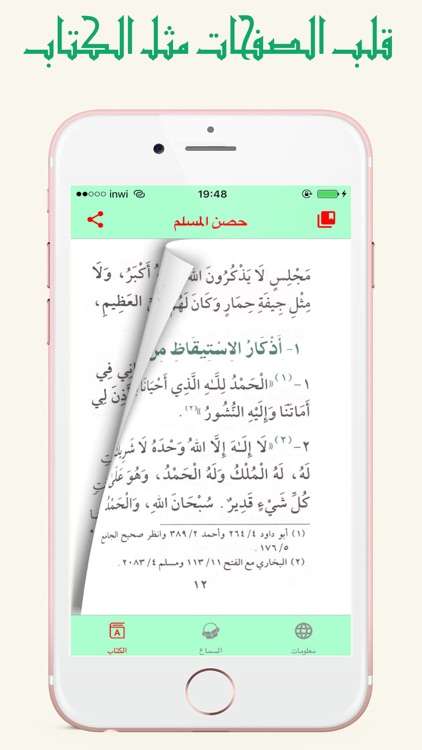 قلب الصفحات مثل الكتاب
inwi
19:48
حصن المسلم
مَجْلِسٍ لَا يَذْكُرُونَ اللهَ
أَكْبَرُ، وَلَا
مِثْلِ جِيفَةِ حِمَارٍ وَكَانَ لَهُمْ
العَظِيمِ،
١- أَذْكَارُ الاسْتِيقَاظِ مِنَ
١-(١)«الْحَمْدُ لِلَّـهِ الَّذِي أَحْيَانَا
فِي
أَمَاتَنَا وَإِلَيْهِ النُّشُورُ»(٢).
لِي
٢-(٢)«لَا إِلَـٰهَ إِلَّا اللهُ وَحْدَهُ لَا شَرِيكَ
لَهُ، لَهُ الْمُلْكُ وَلَهُ الْحَمْدُ، وَهُوَ عَلَىٰ
كُلِّ شَيْءٍ قَدِيرٌ. سُبْحَانَ اللهِ، وَالْحَمْدُ
(١) أبو داود ٤/ ٢٦٤ وأحمد ٢/ ٣٨٩ وانظر صحيح الجامع
٥/ ١٧٦.
(٢) البخاري مع الفتح ١١/ ١١٣ ومسلم ٤/ ٢٠٨٣.
١٢
الكتاب
السماع
معلومات